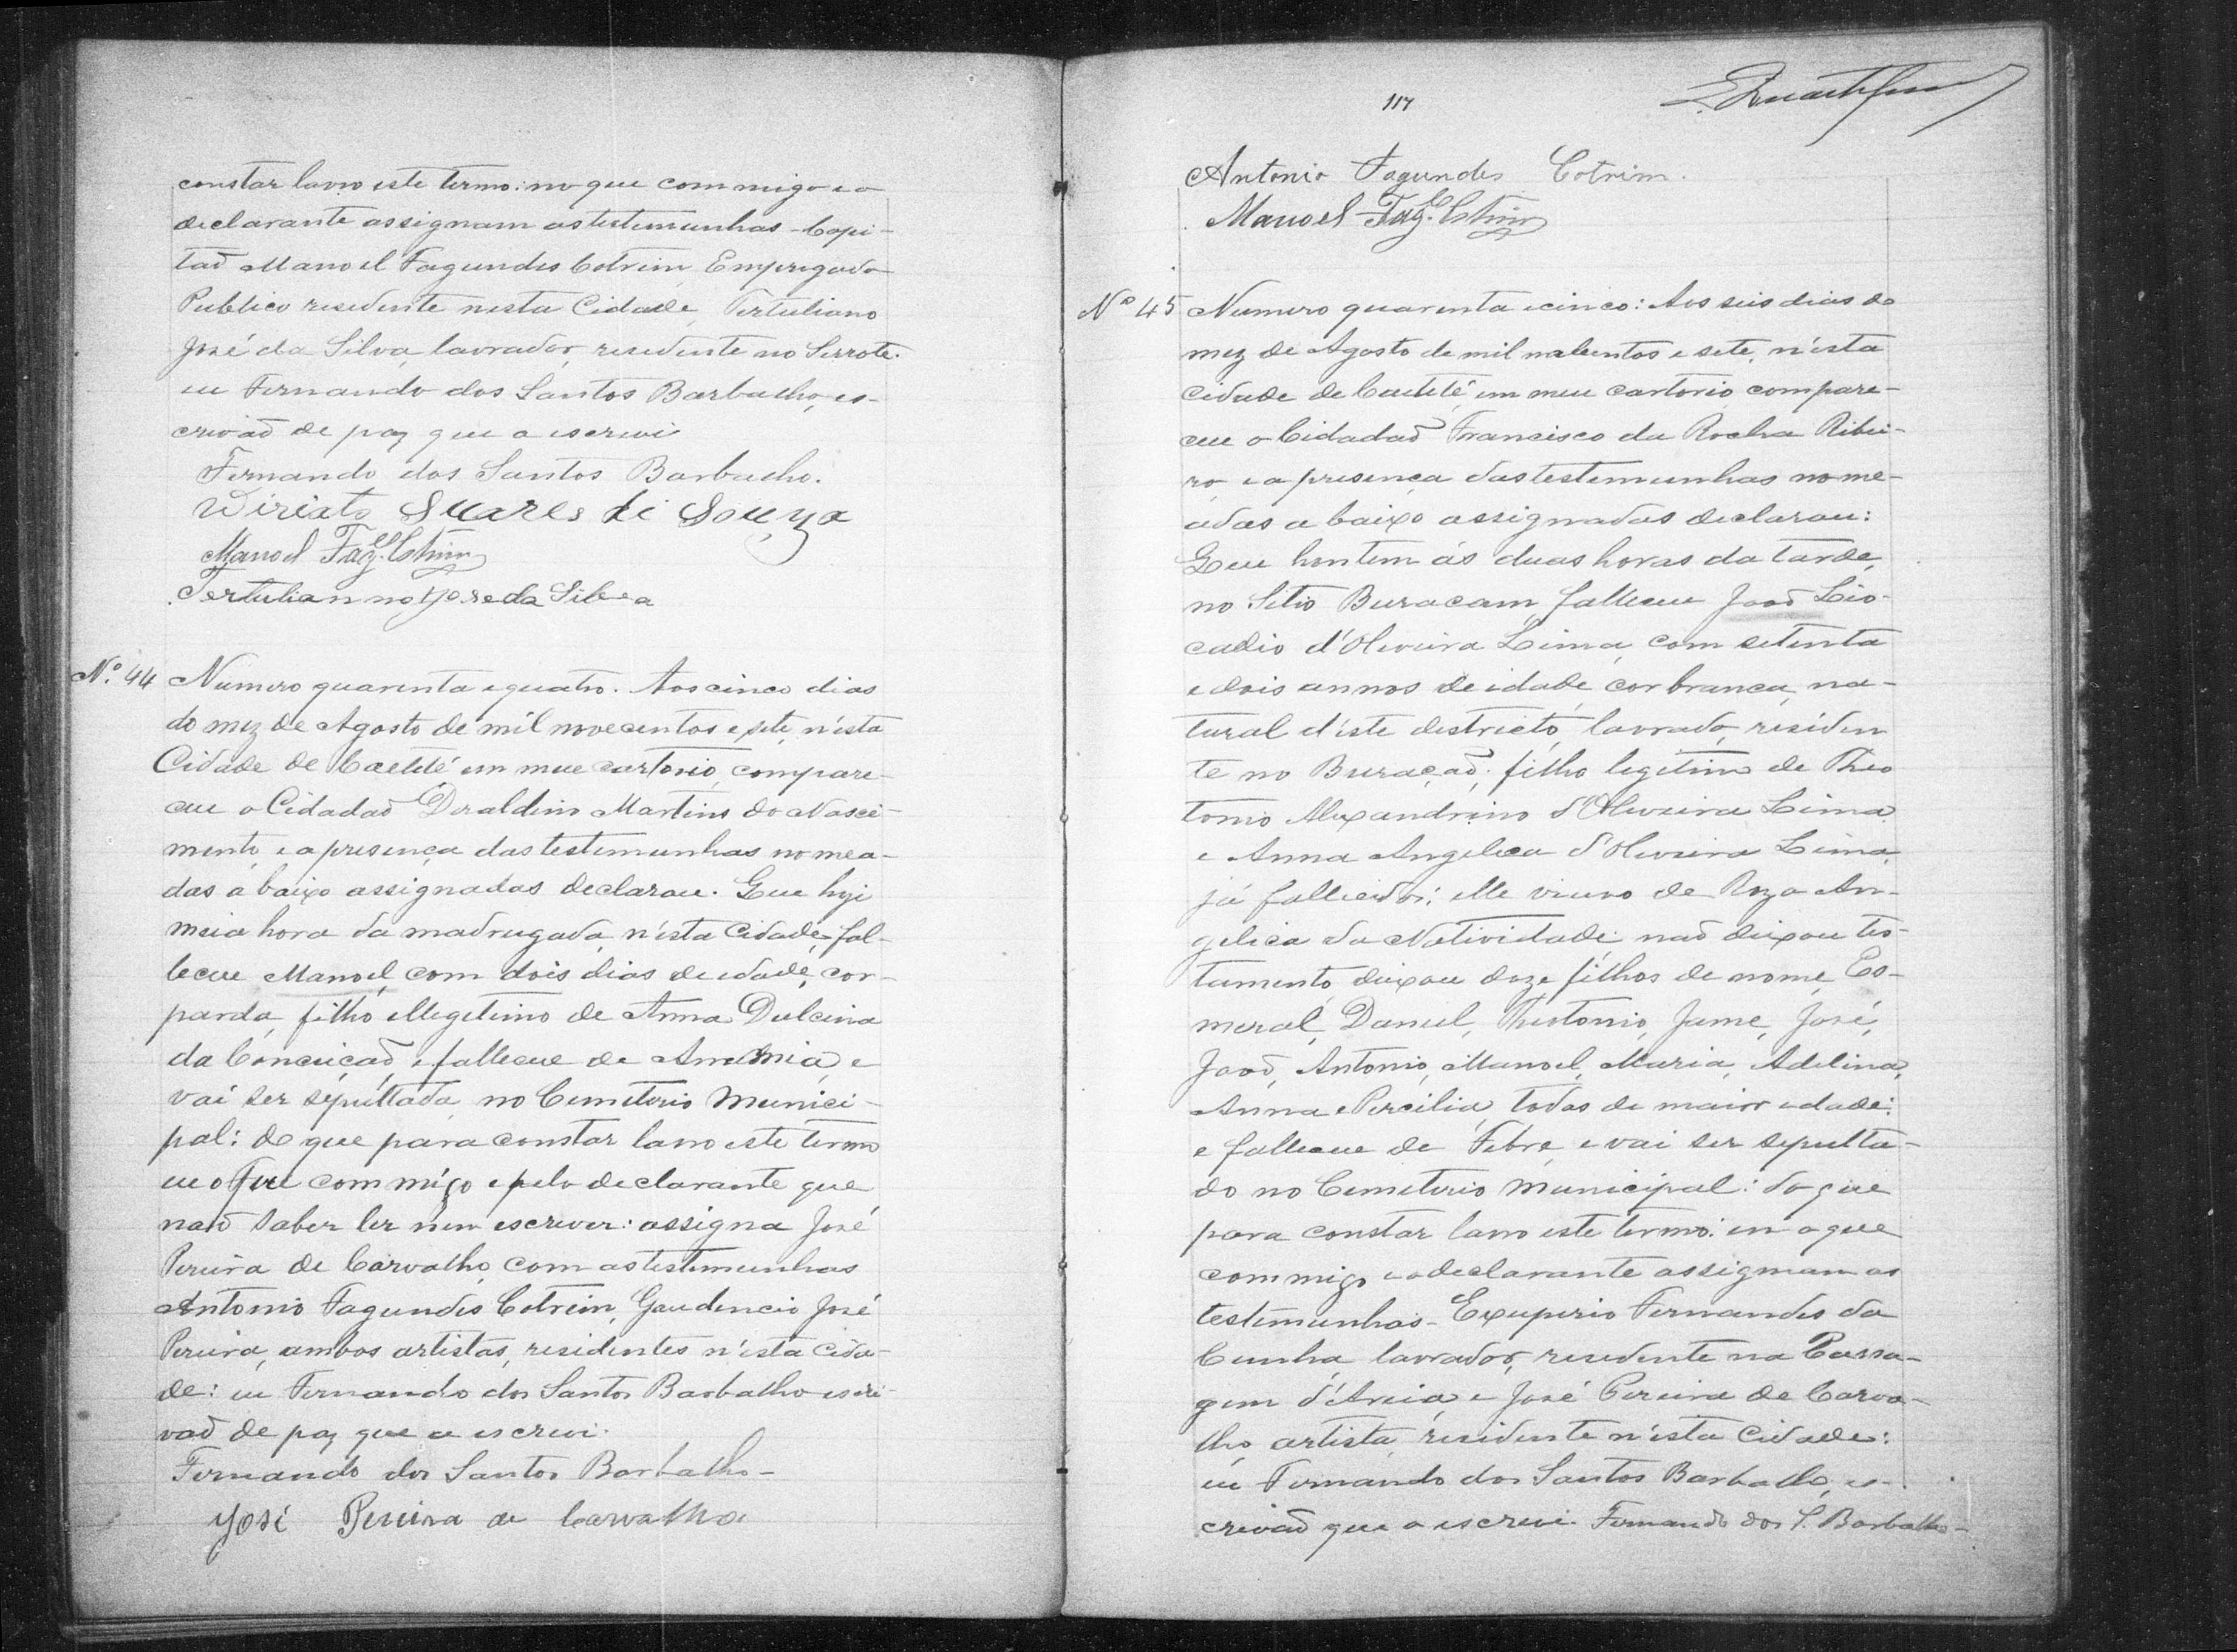 constar lavro este termo: no que commigo e o
declarante assignam as testemunhas - Capi-
taõ Manoel Fagundes Cotrim, Empregado
Publico residente nesta Cidade, Tertuliano
José da Silva, lavrador, residente no Serrote.
eu Fernando dos Santos Barbalho, es-
crivaõ de paz que o escrevi
Fernando dos Santos Barbalho.
Wiriato Suares de Souza
Manoel Fag.es Cotrim
Tertulianno Jose da Silva
Nº 44 Numero quarenta e quatro. Aos cinco dias
do mez de Agosto de mil novecentos e sete, n'esta
Cidade de Caeteté em meu cartorio, compare-
ceu o Cidadaõ Deraldino Martins do Nasci-
mento, e a presença das testemunhas nomea-
das abaixo assignadas declarou. Que hoje
meia hora da madrugada, n'esta Cidade, fal-
leceu Manoel, com dois dias de edade, cor
parda, filho ellegitimo de Anna Dulcina
da Conceiçaõ, e falleceu de Anemia, e
vai ser sepultado no Cemiterio Munici-
pal: do que para constar lavro este termo
em o que commigo e pelo declarante que
naõ saber ler nem escrever: assigna José
Pereira de Carvalho com as testemunhas
Antonio Fagundes Cotrim, Gaudencio José
Pereira, ambos artistas, residentes n'esta Cida-
de: eu Fernando dos Santos Barbalho escri-
vaõ de paz que o escrevi.
Fernando dos Santos Barbalho-
José Pereira de Carvalho
117
Antonio Fagundes Cotrim.
Manoel Fag.es Cotrim
Nº 45 Numero quarenta e cinco: Aos seis dias do
mez de Agosto de mil novecentos e sete, n'esta
cidade de Caeteté em meu cartorio compare-
ceu o Cidadaõ Francisco da Rocha Ribei-
ro, e a presença das testemunhas nome-
adas abaixo assignadas declarou:
Que hontem ás duas horas da tarde,
no Sitio Buracam, falleceu Joaõ Leo-
cadio d'Oliveira Lima, com setenta
e dois annos de idade, cor branca, na-
tural d'este destricto, lavrado, residen
te no Buracaõ; filho legitimo de Theo
tonio Alexandrino d'Oliveira Lima
e Anna Angelica d'Oliveira Lima,
já fallecidos; elle viuvo de Roza An-
gelica da Natividade: naõ deixou tes-
tamento, deixou doze filhos de nome, Es-
meral, Daniel, Theotonio, Jame, José,
Joaõ, Antonio, Manoel, Maria, Adelina,
Anna e Percilia, todos de maior edade:
e falleceu de Febre, e vai ser sepulta-
do no Cemiterio Municipal: do que
para constar lavro este termo: em o que
commigo e o declarante assignam as
testemunhas - Exuperio Fernandes da
Cunha lavrador, residente na Passa-
gem d'Areia e José Pereira de Carva-
lho artista, residente n'esta Cidade:
eu Fernando dos Santos Barbalho, es-
crivaõ que o escrevi Fernando dos S. Barbalho-